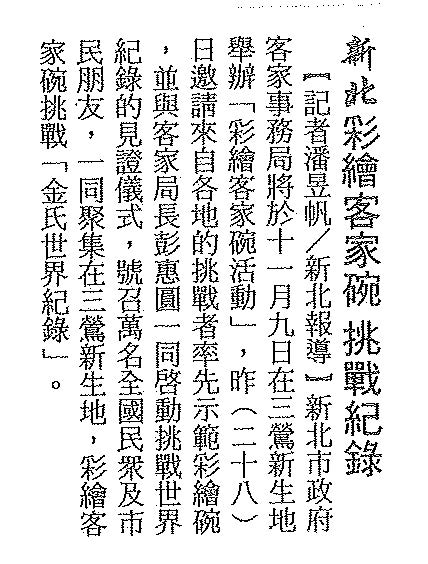 新北彩繪客家碗 挑戰紀錄
【記者潘昱帆／新北報導】新北市政府
客家事務局將於十一月九日在三鶯新生地
舉辦「彩繪客家碗活動」，昨（二十八）
日邀請來自各地的挑戰者率先示範彩繪碗
，並與客家局長彭惠圓一同啓動挑戰世界
紀錄的見證儀式，號召萬名全國民眾及市
民朋友，一同聚集在三鶯新生地，彩繪客
家碗挑戰「金氏世界紀錄」。